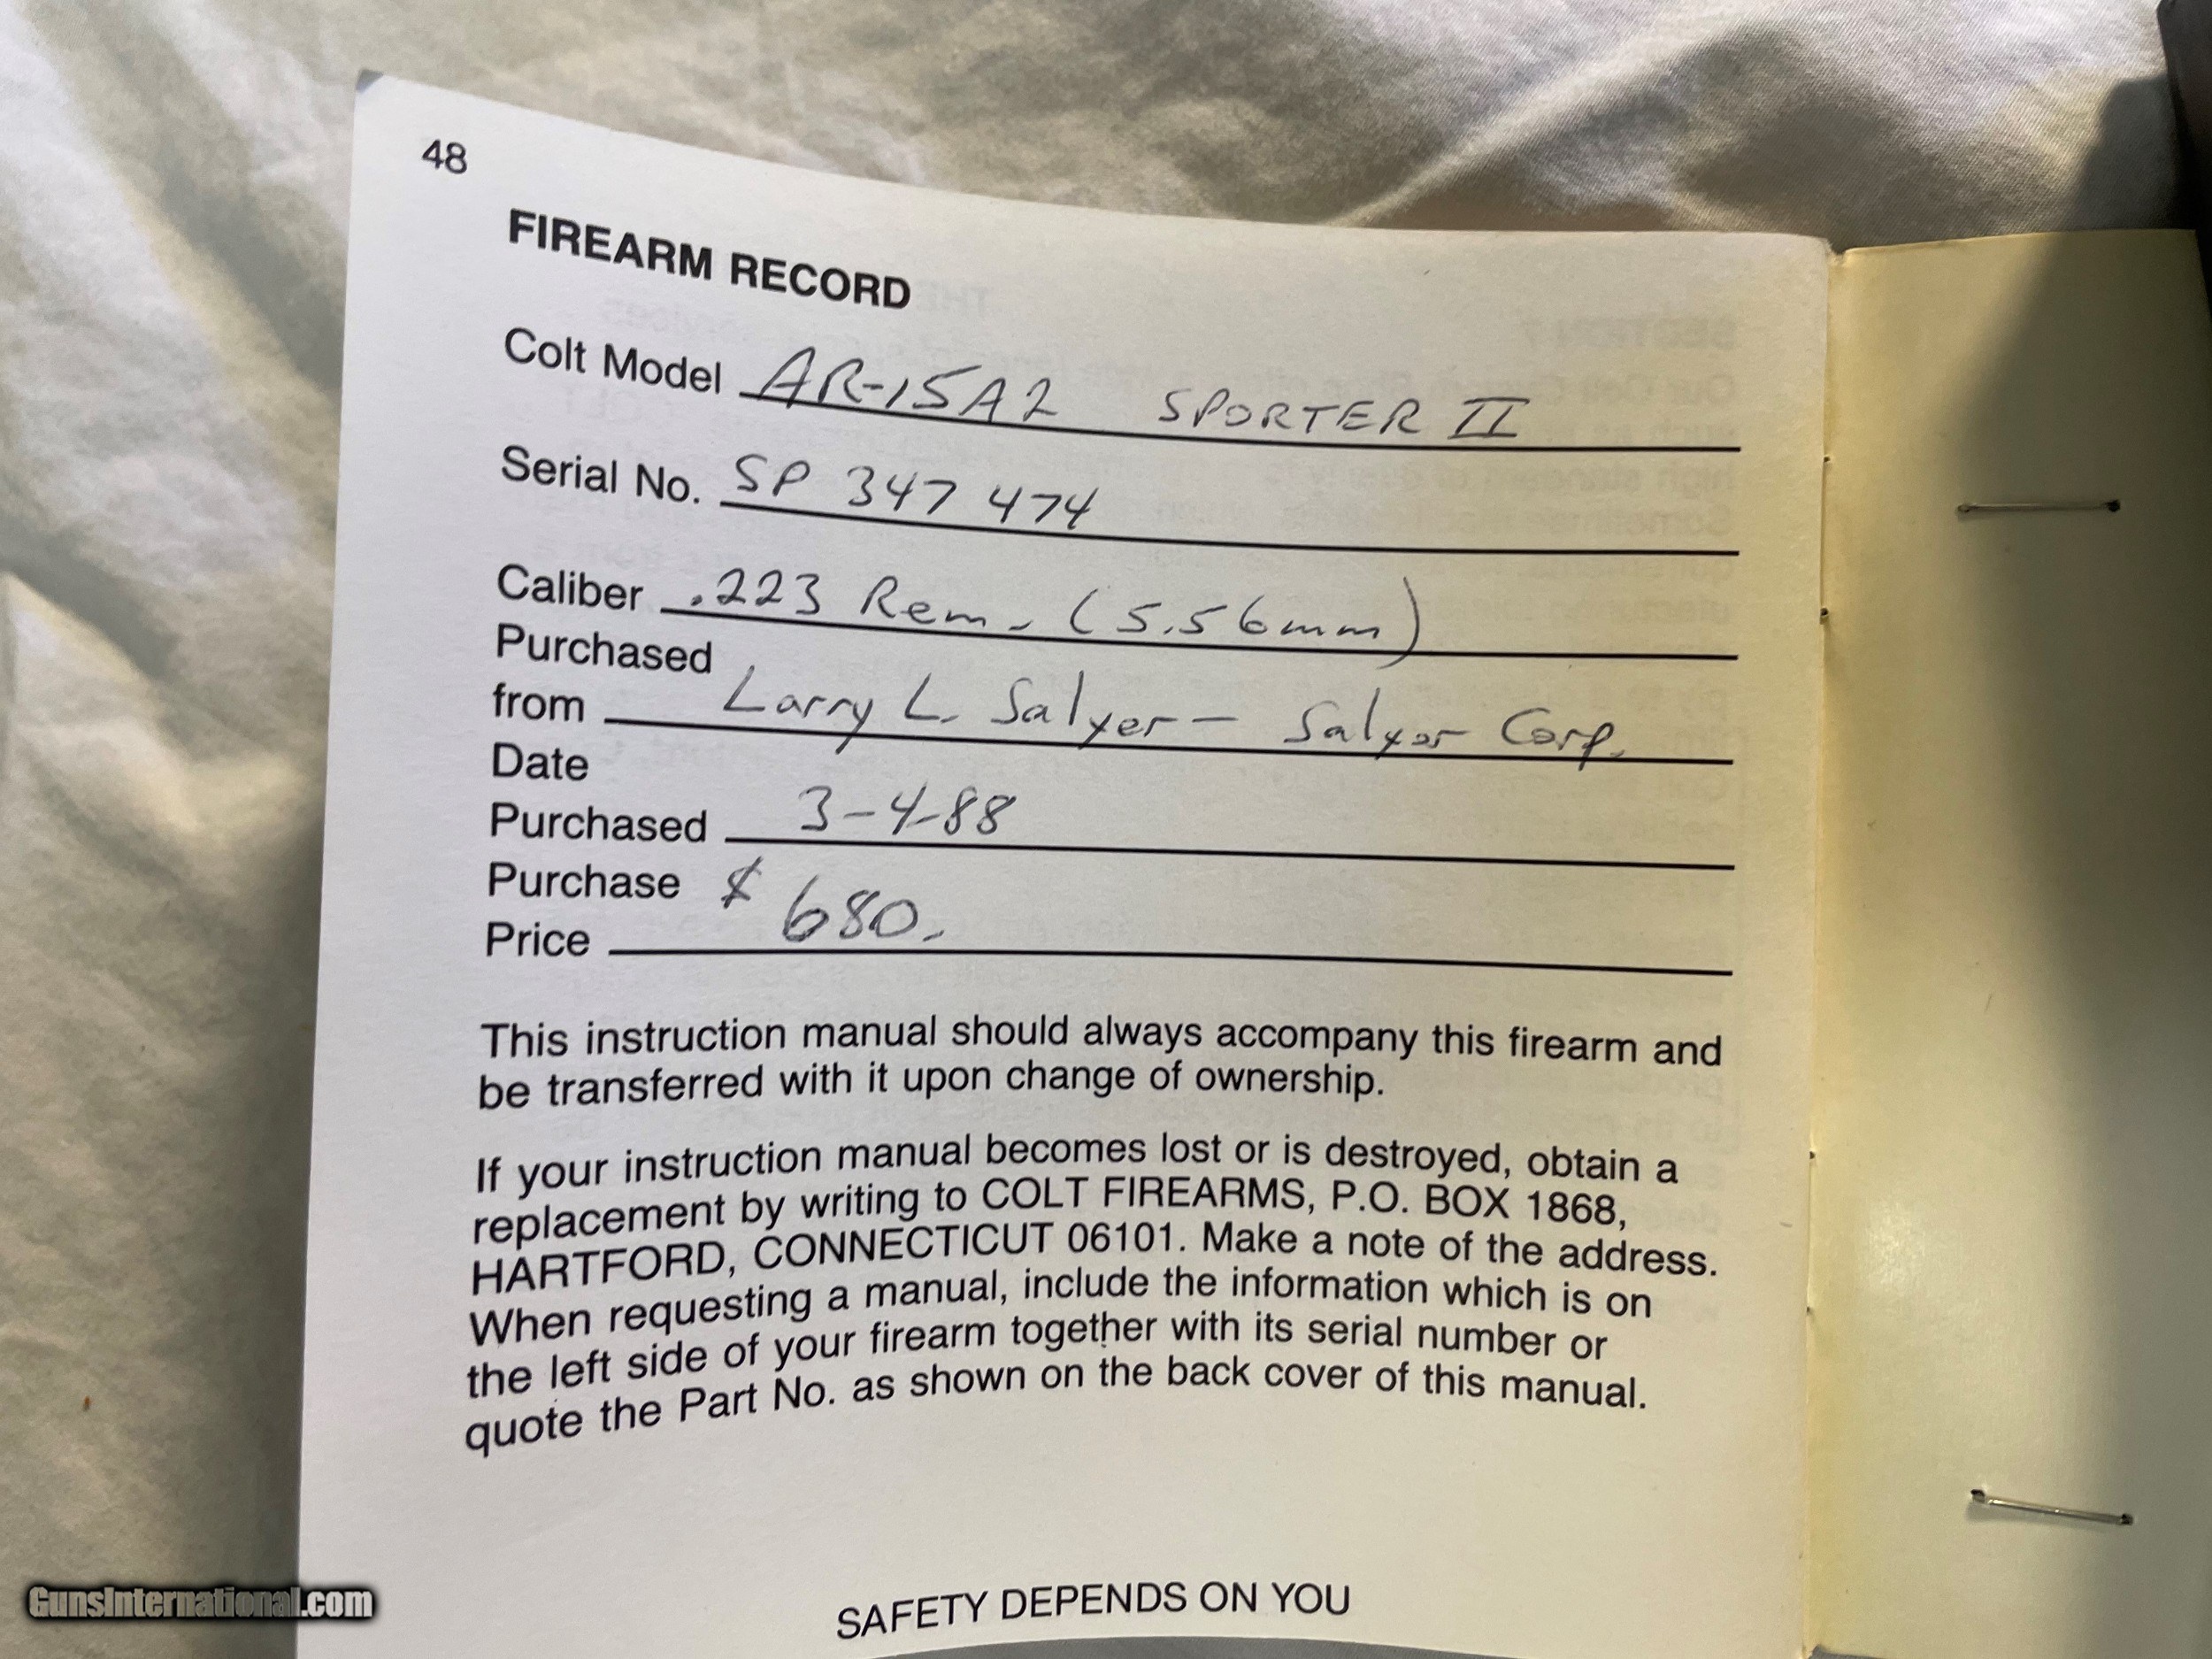 48
FIREARM RECORD
Colt Model AR-15A2 SPORTER II
Serial No. SP 347 474
Caliber .223 Rem. (5.56mm)
Purchased
from Larry L. Salyer - Salyer Corp.
Date
Purchased 3-4-88
Purchase $ 680.
Price
This instruction manual should always accompany this firearm and
be transferred with it upon change of ownership.
If your instruction manual becomes lost or is destroyed, obtain a
replacement by writing to COLT FIREARMS, P.O. BOX 1868,
HARTFORD, CONNECTICUT 06101. Make a note of the address.
When requesting a manual, include the information which is on
the left side of your firearm together with its serial number or
quote the Part No. as shown on the back cover of this manual.
SAFETY DEPENDS ON YOU
GunsInternational.com